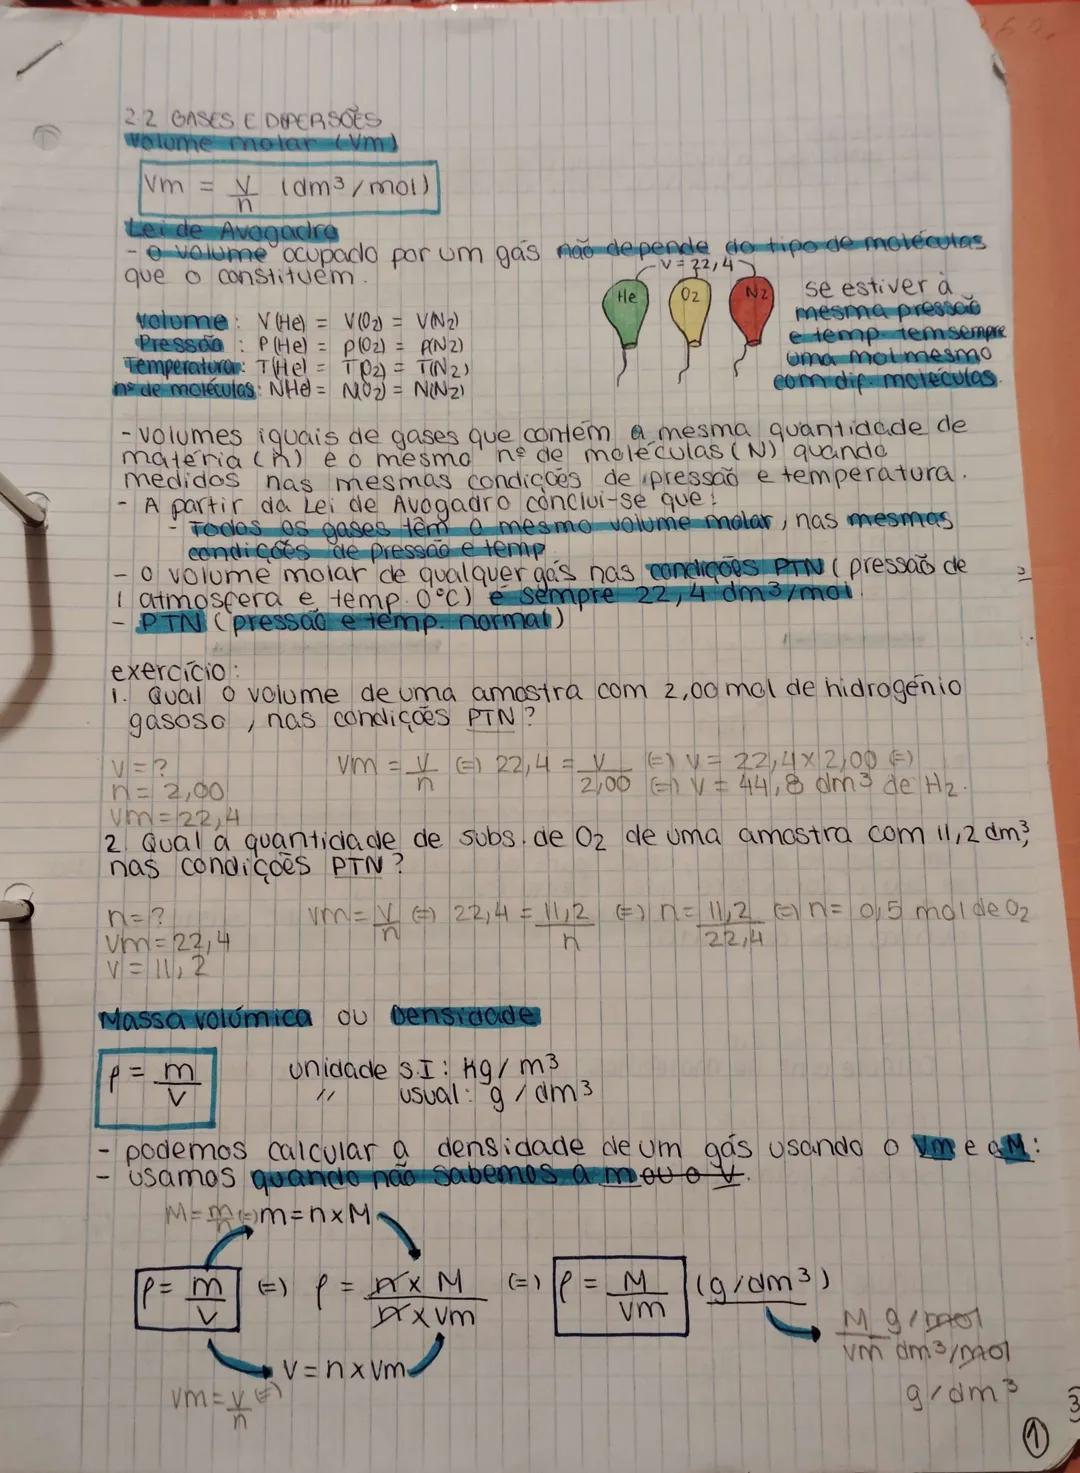 2.2 GASES E DIPERSÕES
Volume molar (Vm)
Vm = V/n (dm³/mol)
Lei de Avogadro
- O volume ocupado por um gás não depende do tipo de moléculas
que o constituem.
V = 22,4
He O2 N2
se estiver à
mesma pressão
e temp. tem sempre
uma mol mesmo
com dif. moléculas.
volume: V(He) = V(O2) = V(N2)
Pressão: P(He) = P(O2) = P(N2)
Temperatura: T(He) = T(O2) = T(N2)
nº de moléculas: N(He) = N(O2) = N(N2)
- volumes iguais de gases que contém a mesma quantidade de
matéria (n) e o mesmo nº de moléculas (N) quando
medidos nas mesmas condições de pressão e temperatura.
- A partir da Lei de Avogadro conclui-se que:
- Todos os gases têm o mesmo volume molar, nas mesmas
condições de pressão e temp.
- O volume molar de qualquer gás nas condições PTN (pressão de
1 atmosfera e temp. 0°C) é sempre 22,4 dm³/mol.
- PTN (pressão e temp. normal)
exercício:
1. Qual o volume de uma amostra com 2,00 mol de hidrogénio
gasoso, nas condições PTN?
V = ?
n = 2,00
Vm = 22,4
Vm = V/n (=) 22,4 = V/2,00 (=) V = 22,4 x 2,00 (=)
(=) V = 44,8 dm³ de H2.
2. Qual a quantidade de subs. de O2 de uma amostra com 11,2 dm³,
nas condições PTN?
n = ?
Vm = 22,4
V = 11,2
Vm = V/n (=) 22,4 = 11,2/n (=) n = 11,2/22,4 (=) n = 0,5 mol de O2
Massa volúmica ou Densidade
ρ = m/V
unidade S.I: Kg/m³
" usual: g/dm³
- podemos calcular a densidade de um gás usando o Vm e a M:
- usamos quando não sabemos a m ou o V.
M = m/n (=) m = n x M
ρ = m/V (=) ρ = n x M/n x Vm (=) ρ = M/Vm (g/dm³)
V = n x Vm
Vm = V/n (=)
M g/mol
Vm dm³/mol
g/dm³
1